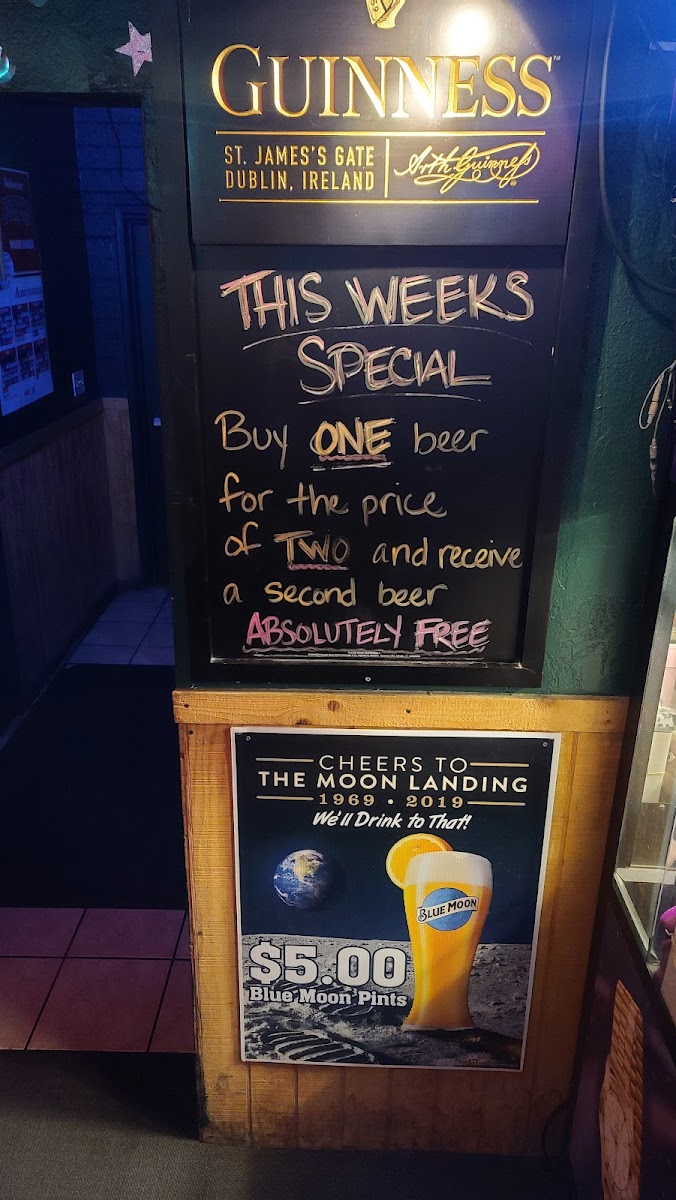 GUINNESS™
ST. JAMES'S GATE
DUBLIN, IRELAND
Arth Guinness
THIS WEEKS
SPECIAL
Buy ONE beer
for the price
of TWO and receive
a second beer
ABSOLUTELY FREE
CHEERS TO
THE MOON LANDING
1969 • 2019
We'll Drink to That!
BLUE MOON
$5.00
Blue Moon Pints